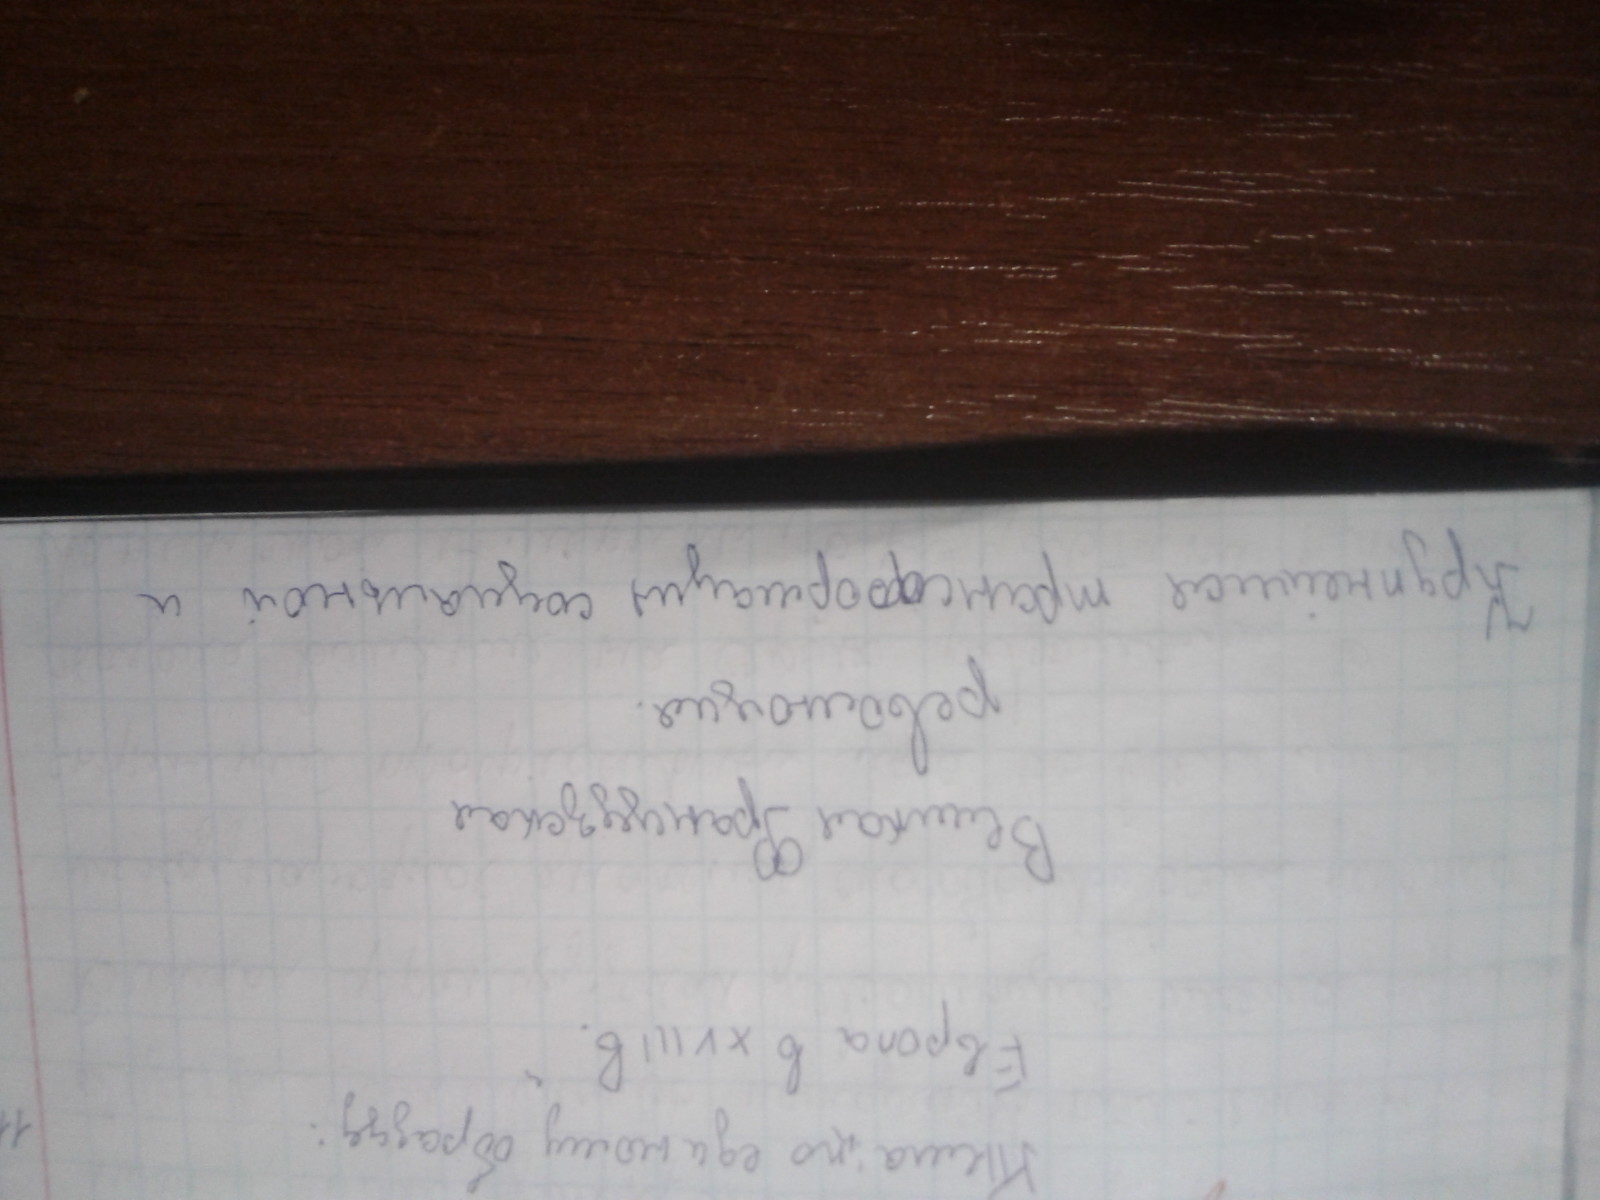 Тема: по единому образцу:
Европа в XVIII в.
Великая Французская
революция.
Крупнейшая трансформация социальной и